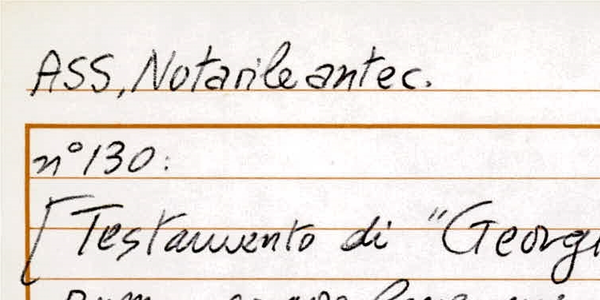 ASS, Notarile antec.
n° 130:
[Testamento di "Georgi